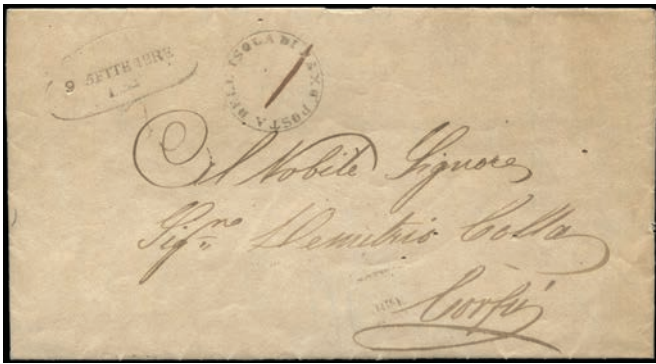 9 SETTEMBRE
POSTA DELL'ISOLA DI PAXO
Al Nobile Signore
Sigre Demetrio Colla
Corfù